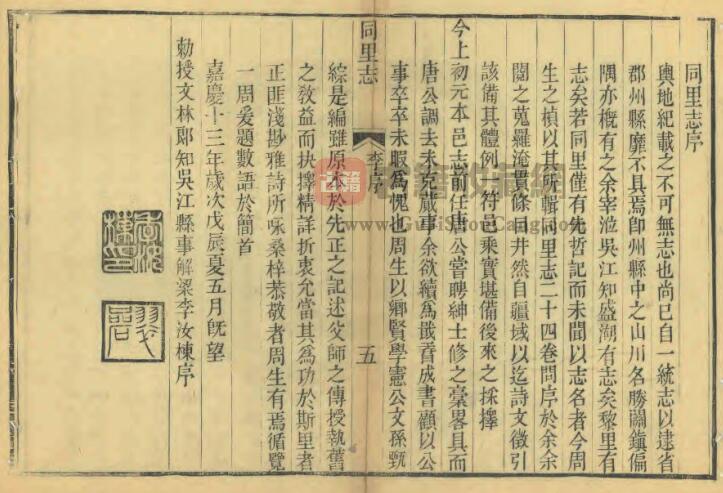 同里志序
輿地紀載之不可無志也尚已自一統志以逮省
郡州縣靡不具焉卽州縣中之山川名勝關鎮偏
隅亦概有之余宰涖吳江知盛湖有志矣黎里有
志矣若同里僅有先哲記而未聞以志名者今周
生之楨以其所輯同里志二十四卷問序於余余
閱之蒐羅淹貫條目井然自疆域以迄詩文徵引
該備其體例一符邑乘實堪備後來之採擇
今上初元本邑志前任唐公嘗聘紳士修之藁畧具而
唐公調去未克蕆事余欲續爲戢香成書顧以公
事卒卒未暇爲愧也周生以鄉賢學憲公文孫甄
同里志
李序
五
綜是編雖原本於先正之記述父師之傳授執舊
之敎益而抉擇精詳折衷允當其爲功於斯里者
正匪淺尠雅詩所咏桑梓恭敬者周生有焉循覽
一周爰題數語於簡首
嘉慶十三年歲次戊辰夏五月旣望
勅授文林郎知吳江縣事解梁李汝棟序
古籍收藏網
www.GuJiShouCang.com